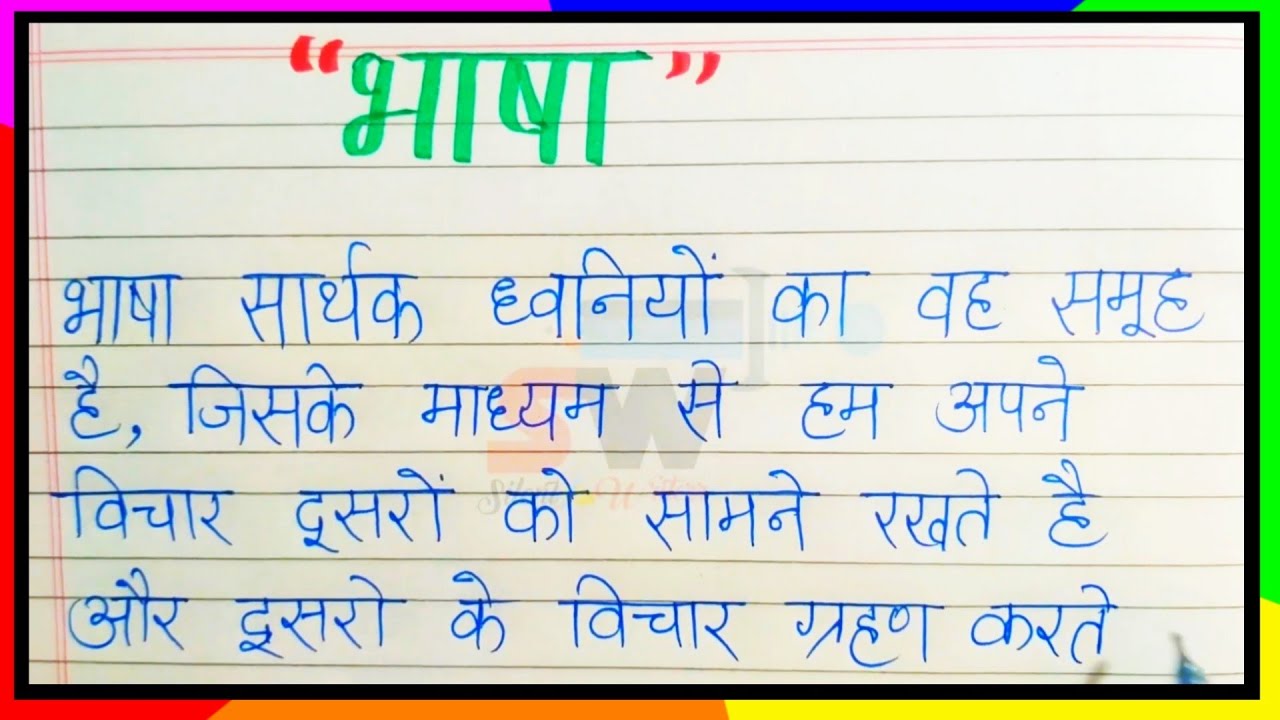 “भाषा”
भाषा सार्थक ध्वनियों का वह समूह
है, जिसके माध्यम से हम अपने
विचार दूसरों को सामने रखते है
और दूसरो के विचार ग्रहण करते
SW